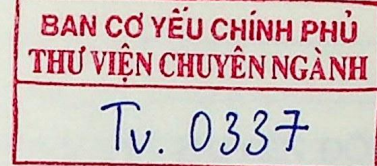 BAN CƠ YẾU CHÍNH PHỦ
THƯ VIỆN CHUYÊN NGÀNH
Tv. 0337